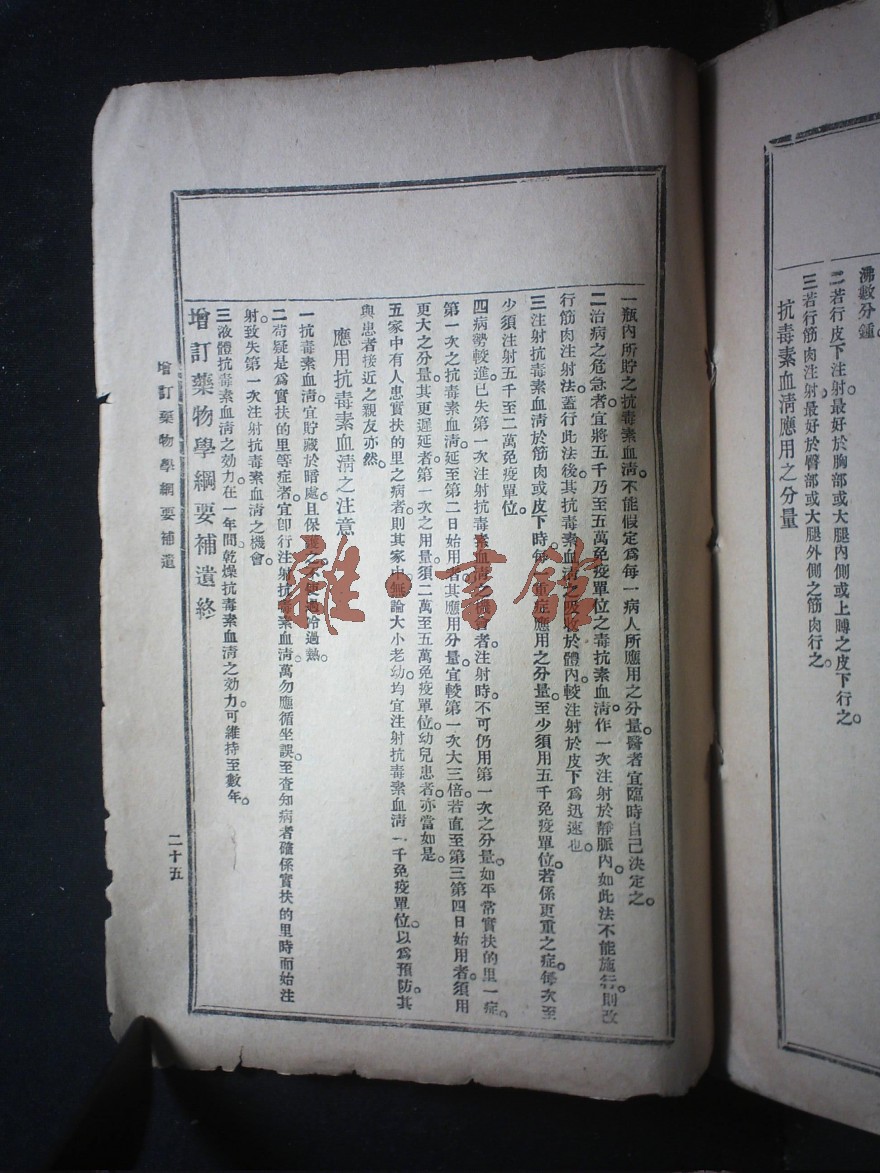 沸數分鐘。
二若行皮下注射。最好於胸部或大腿內側或上膊之皮下行之。
三若行筋肉注射。最好於臀部或大腿外側之筋肉行之。
抗毒素血清應用之分量
一瓶內所貯之抗毒素血清。不能假定爲每一病人所應用之分量。醫者宜臨時自己決定之。
二治病之危急者。宜將五千乃至五萬免疫單位之毒抗素血清。作一次注射於靜脈內。如此法不能施行。則改
行筋肉注射法。蓋行此法後。其抗毒素血清之吸收於體內。較注射於皮下爲迅速也。
三注射抗毒素血清於筋肉或皮下時。每一重症應用之分量。至少須用五千免疫單位。若係更重之症。每次至
少須注射五千至二萬免疫單位。
四病勢較進。已失第一次注射抗毒素血清之機會者。注射時。不可仍用第一次之分量。如平常實扶的里一症。
第一次之抗毒素血清。延至第二日始用者。其應用分量。宜較第一次大三倍。若直至第三第四日始用者。須用
更大之分量。其更遲延者。第一次之用量。須二萬至五萬免疫單位。幼兒患者。亦當如是。
五家中有人患實扶的里之病者。則其家中。無論大小老幼。均宜注射抗毒素血清一千免疫單位。以爲預防。其
與患者接近之親友亦然。
應用抗毒素血清之注意
一抗毒素血清。宜貯藏於暗處。且保護之。不使過冷過熱。
二苟疑是爲實扶的里等症者。宜卽行注射抗毒素血清。萬勿應循坐誤。至查知病者確係實扶的里時而始注
射。致失第一次注射抗毒素血清之機會。
三液體抗毒素血清之効力。在一年間。乾燥抗毒素血清之効力。可維持至數年。
增訂藥物學綱要補遺終
增訂藥物學綱要補遺
二十五
雜·書館